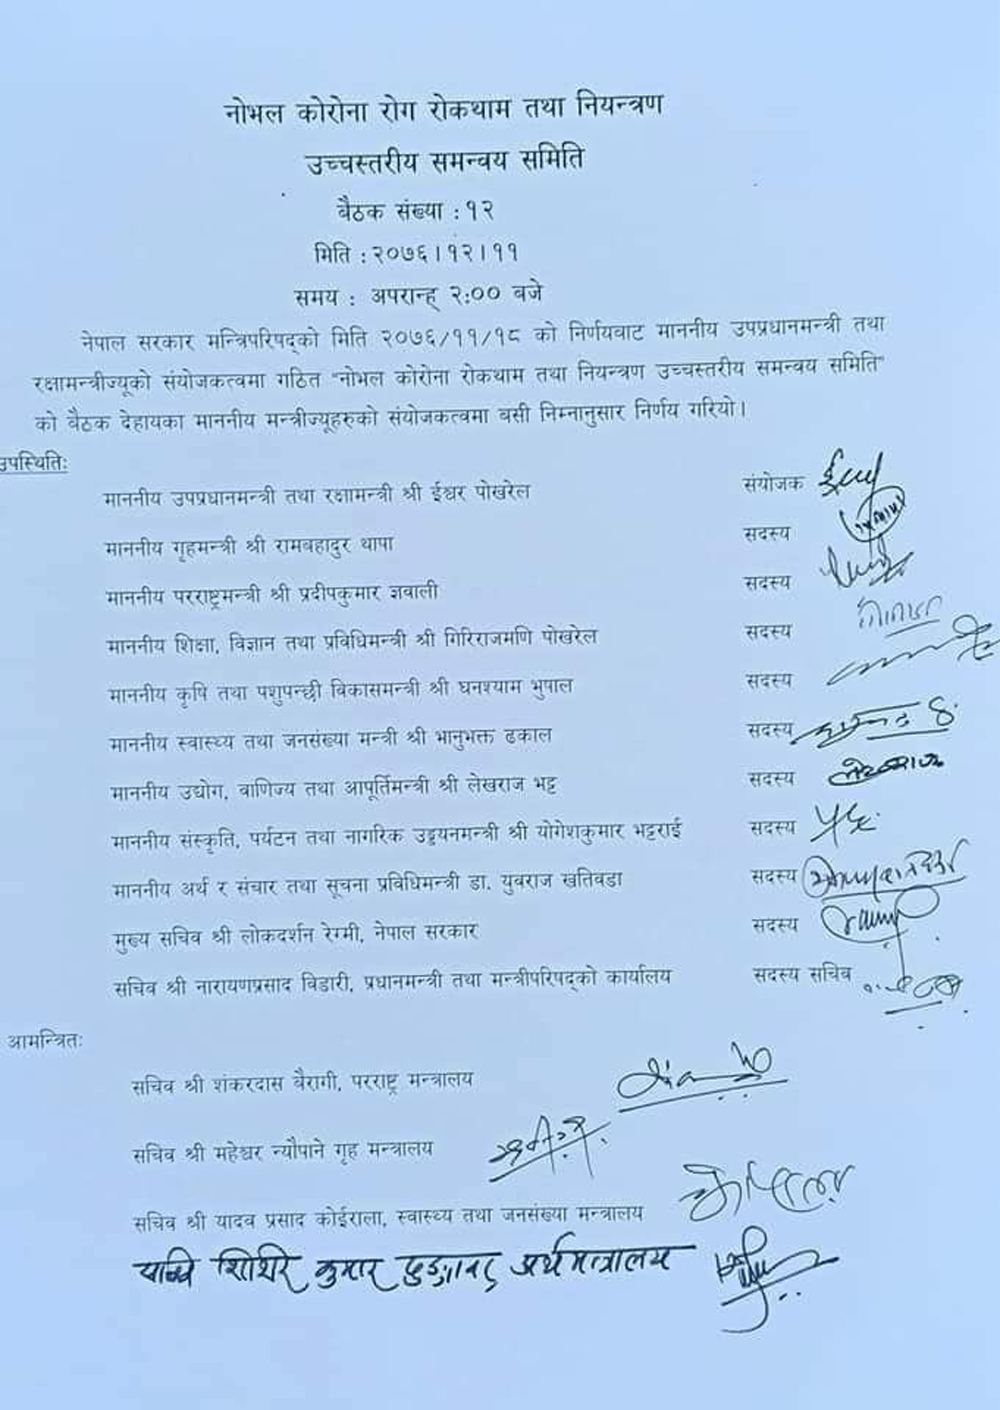 नोभल कोरोना रोग रोकथाम तथा नियन्त्रण
उच्चस्तरीय समन्वय समिति
बैठक संख्या : १२
मिति : २०७६।१२।११
समय : अपरान्ह् २:०० बजे
नेपाल सरकार मन्त्रिपरिषद्को मिति २०७६/११/१८ को निर्णयवाट माननीय उपप्रधानमन्त्री तथा
रक्षामन्त्रीज्यूको संयोजकत्वमा गठित "नोभल कोरोना रोकथाम तथा नियन्त्रण उच्चस्तरीय समन्वय समिति"
को बैठक देहायका माननीय मन्त्रीज्यूहरुको संयोजकत्वमा बसी निम्नानुसार निर्णय गरियो।
उपस्थितिः
माननीय उपप्रधानमन्त्री तथा रक्षामन्त्री श्री ईश्वर पोखरेल संयोजक
माननीय गृहमन्त्री श्री रामबहादुर थापा सदस्य
माननीय परराष्ट्रमन्त्री श्री प्रदीपकुमार ज्ञवाली सदस्य
माननीय शिक्षा, विज्ञान तथा प्रविधिमन्त्री श्री गिरिराजमणि पोखरेल सदस्य
माननीय कृषि तथा पशुपन्छी विकासमन्त्री श्री घनश्याम भुषाल सदस्य
माननीय स्वास्थ्य तथा जनसंख्या मन्त्री श्री भानुभक्त ढकाल सदस्य
माननीय उद्योग, वाणिज्य तथा आपूर्तिमन्त्री श्री लेखराज भट्ट सदस्य
माननीय संस्कृति, पर्यटन तथा नागरिक उड्डयनमन्त्री श्री योगेशकुमार भट्टराई सदस्य
माननीय अर्थ र संचार तथा सूचना प्रविधिमन्त्री डा. युवराज खतिवडा सदस्य
मुख्य सचिव श्री लोकदर्शन रेग्मी, नेपाल सरकार सदस्य
सचिव श्री नारायणप्रसाद विडारी, प्रधानमन्त्री तथा मन्त्रीपरिषद्को कार्यालय सदस्य सचिव
आमन्त्रितः
सचिव श्री शंकरदास बैरागी, परराष्ट्र मन्त्रालय
सचिव श्री महेश्वर न्यौपाने गृह मन्त्रालय
सचिव श्री यादव प्रसाद कोईराला, स्वास्थ्य तथा जनसंख्या मन्त्रालय
सचिव शिशिर कुमार ढुङ्गाना, अर्थ मन्त्रालय